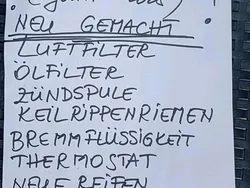 NEU GEMACHT
LUFTFILTER
ÖLFILTER
ZÜNDSPULE
KEILRIPPENRIEMEN
BREMMFLÜSSIGKEIT
THERMOSTAT
NEUE REIFEN